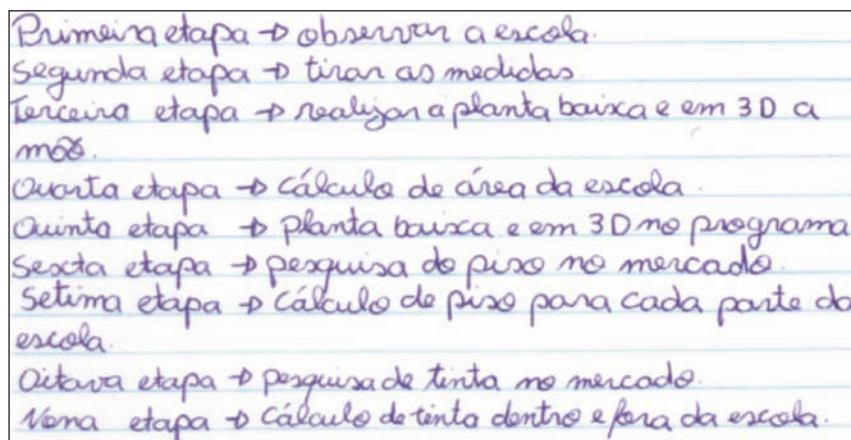 Primeira etapa → observar a escola.
Segunda etapa → tirar as medidas
Terceira etapa → realizar a planta baixa e em 3D a
mão.
Quarta etapa → cálculo de área da escola.
Quinta etapa → planta baixa e em 3D no programa
Sexta etapa → pesquisa do piso no mercado.
Setima etapa → cálculo de piso para cada parte da
escola.
Oitava etapa → pesquisa de tinta no mercado.
Nona etapa → cálculo de tinta dentro e fora da escola.